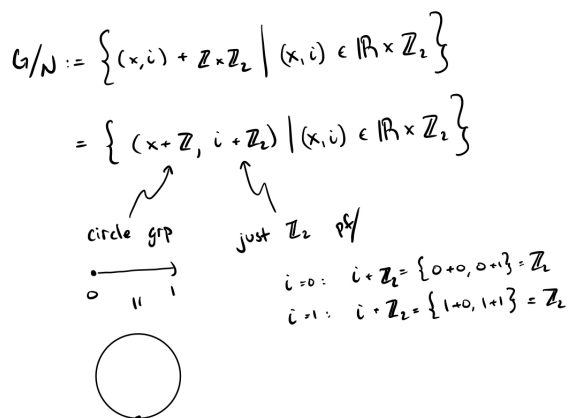 G/N := { (x,i) + ℤ×ℤ₂ | (x,i) ∈ ℝ × ℤ₂ }
= { (x+ℤ, i+ℤ₂) | (x,i) ∈ ℝ × ℤ₂ }
circle grp just ℤ₂ pf/
0 11 1
i=0: i+ℤ₂ = {0+0, 0+1} = ℤ₂
i=1: i+ℤ₂ = {1+0, 1+1} = ℤ₂